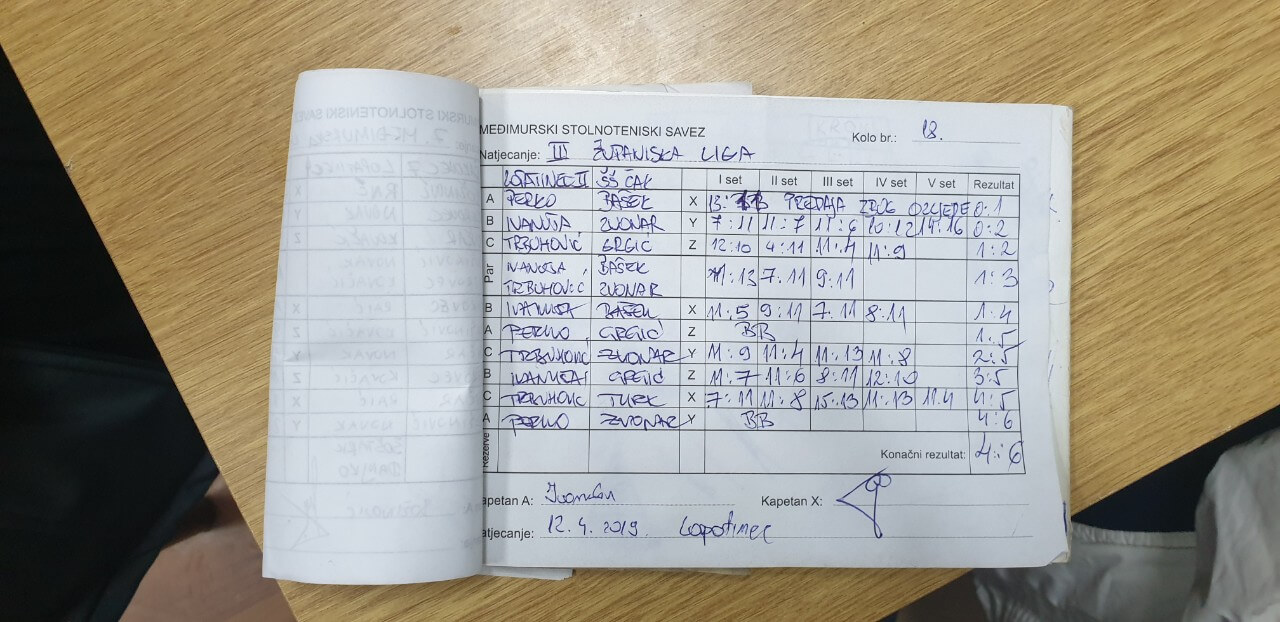 MEĐIMURSKI STOLNOTENISKI SAVEZ
Kolo br.: 18.
Natjecanje: III ŽUPANIJSKA LIGA
LOPATINEC II ŠŠ ČAK I set II set III set IV set V set Rezultat
A PERKO BAŠEK X 13: PREDAJA ZBOG OZLJEDE 0:1
B IVANUŠA ZVONAR Y 7:11 11:7 11:6 10:12 14:16 0:2
C TRBUHOVIĆ GRGIĆ Z 12:10 4:11 11:4 11:9 1:2
Par IVANUŠA, BAŠEK 11:13 7:11 9:11 1:3
TRBUHOVIĆ ZVONAR
B IVANUŠA BAŠEK X 11:5 9:11 7:11 8:11 1:4
A PERKO GRGIĆ Z BB 1:5
C TRBUHOVIĆ ZVONAR Y 11:9 11:4 11:13 11:8 2:5
B IVANUŠA GRGIĆ Z 11:7 11:6 8:11 12:10 3:5
C TRBUHOVIĆ TUREK X 7:11 11:8 15:13 11:13 11:4 4:5
A PERKO ZVONAR Y BB 4:6
Rezerve Konačni rezultat: 4:6
apetan A: Kapetan X:
atjecanje: 12.4.2019. Lopatinec